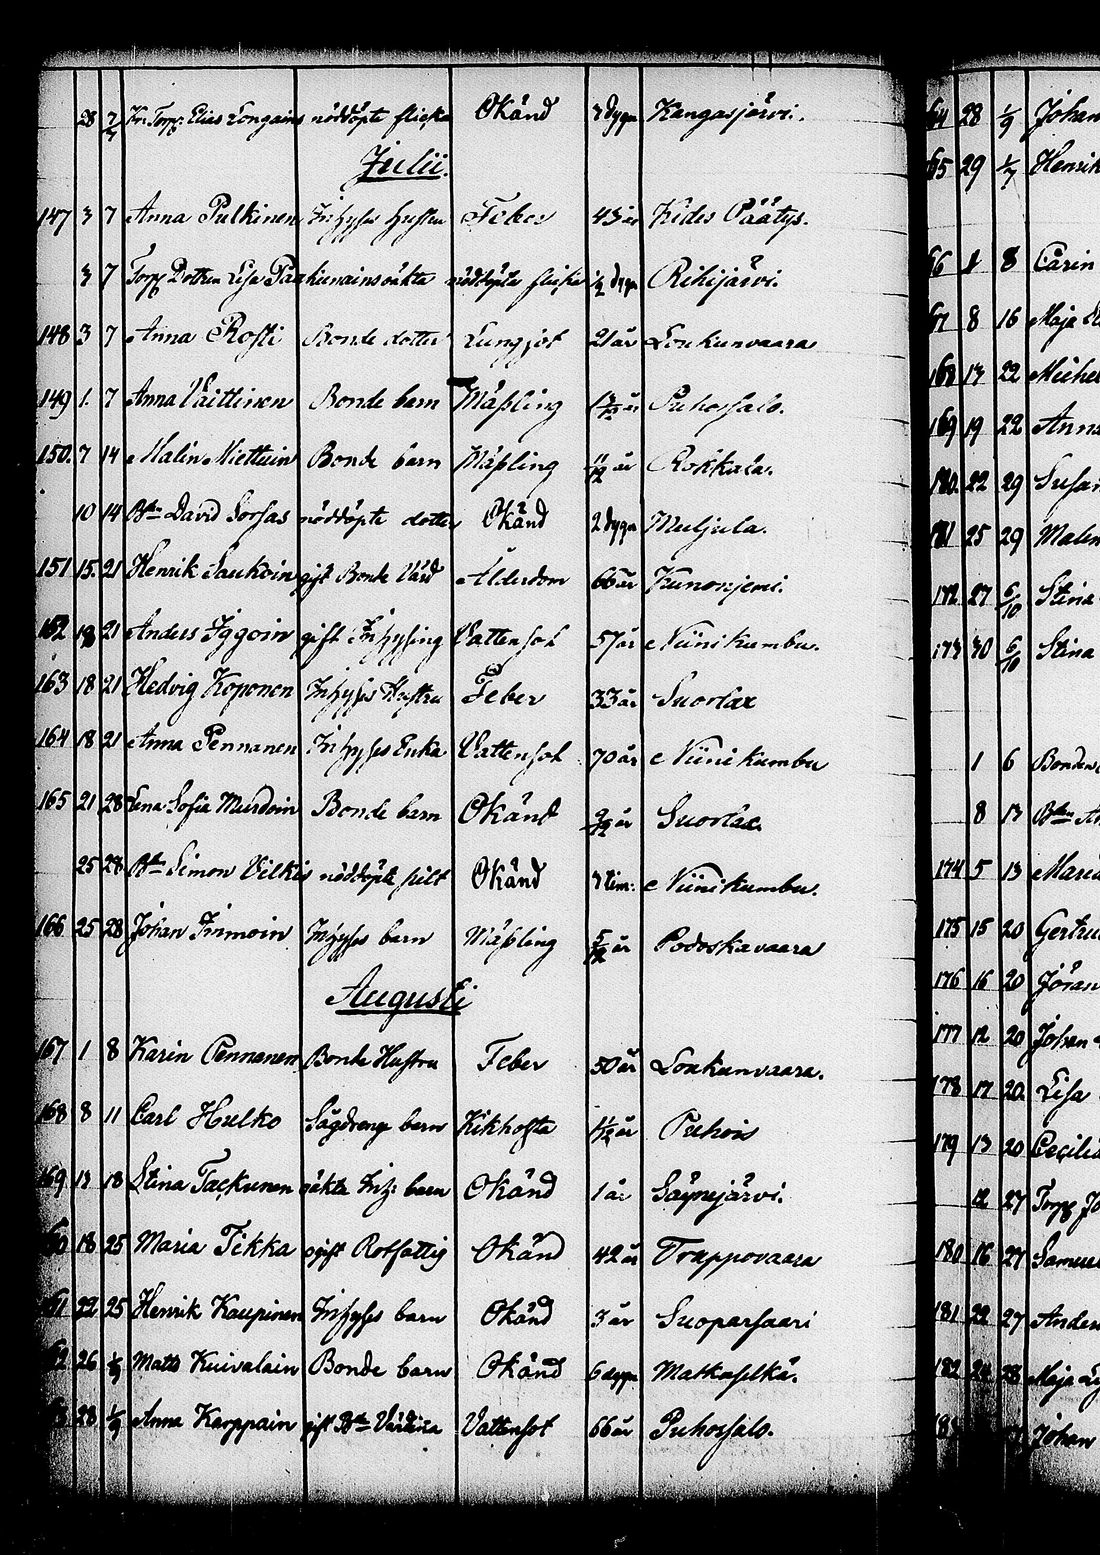 28 7/7 Kr. Torp. Elias Longains nöddöpte flicka Okänd 3 dygn Kangasjärvi.
Julii.
147 3 7 Anna Pulkinen Inhyses hustru Feber 43 år Kides Päätys.
3 7 Torp Dottren Lisa Paakunains oäkta nöddöpte flicka 1/2 dygn Rihijärvi.
148 3 7 Anna Rosti Bonde dotter Lungsot 21 år Loukunvaara
149 1. 7 Anna Väittinen Bonde barn Mäßling år Puhossalo.
150. 7 14 Malin Miettuin Bonde barn Mäßling 11/12 år Rokkala.
10 14 Bdn David Sorsas nöddöpte dotter Okänd 2 dygn Muljula.
151 15. 21 Henrik Saukoin gift Bonde Värd Ålderdom 66 år Kunonjemi.
162 18 21 Anders Iggoin gift Inhysing Vattensot 57 år Niinikumbu.
163 18 21 Hedvig Koponen Inhyses Hustru Feber 33 år Suorlax
164 18 21 Anna Pennanen Inhyses Enka Vattensot 70 år Niinikumbu
165 21 28 Lena Sofia Murdoin Bonde barn Okänd 9/12 år Suorlax.
25 28 Bdn Simon Vilkis nöddöpte pilt Okänd 3 tim: Niinikumbu.
166 25 28 Johan Immoin Inhyses barn Mäßling 5/12 år Podoskavaara
Augusti
167 1 8 Karin Pennanen Bonde Hustru Feber 50 år Loukunvaara.
168 8 11 Carl Hulko Sågdrengs barn Kikhosta 1/12 år Puhois
169 13 18 Stina Tackunen oäkta Inh: barn Okänd 1 år Säynejärvi.
18 25 Maria Tikka ogift Rotfattig Okänd 42 år Trappovaara
22 25 Henrik Kaupinen Inhyses barn Okänd 3 år Suoparsaari
26 1/9 Matts Kuivalain Bonde barn Okänd 6 dygn Matkaselkä.
28 1/9 Anna Karppain gift Bdn Värdina Vattensot 66 år Puhossalo.
64 28 1/9 Johan
65 29 Henrik
66 1 8 Carin
67 8 16 Maja
168 13 22 Michel
169 19 22 Anna
180. 22 29 Susan
181 25 29 Malen
172 27 5/10 Stina
173 30 5/10 Stina
1 6 Bonden
8 13 Bdn
174 5 13 Maria
175 15 20 Gertru
176 16 20 Jöran
177 12 20 Johan
178 17 20. Lisa
179 13 20 Cecilia
12 27 Torp Jo
180 16 27 Samuel
181 22 27 Anders
182 24 28 Maja
Johan